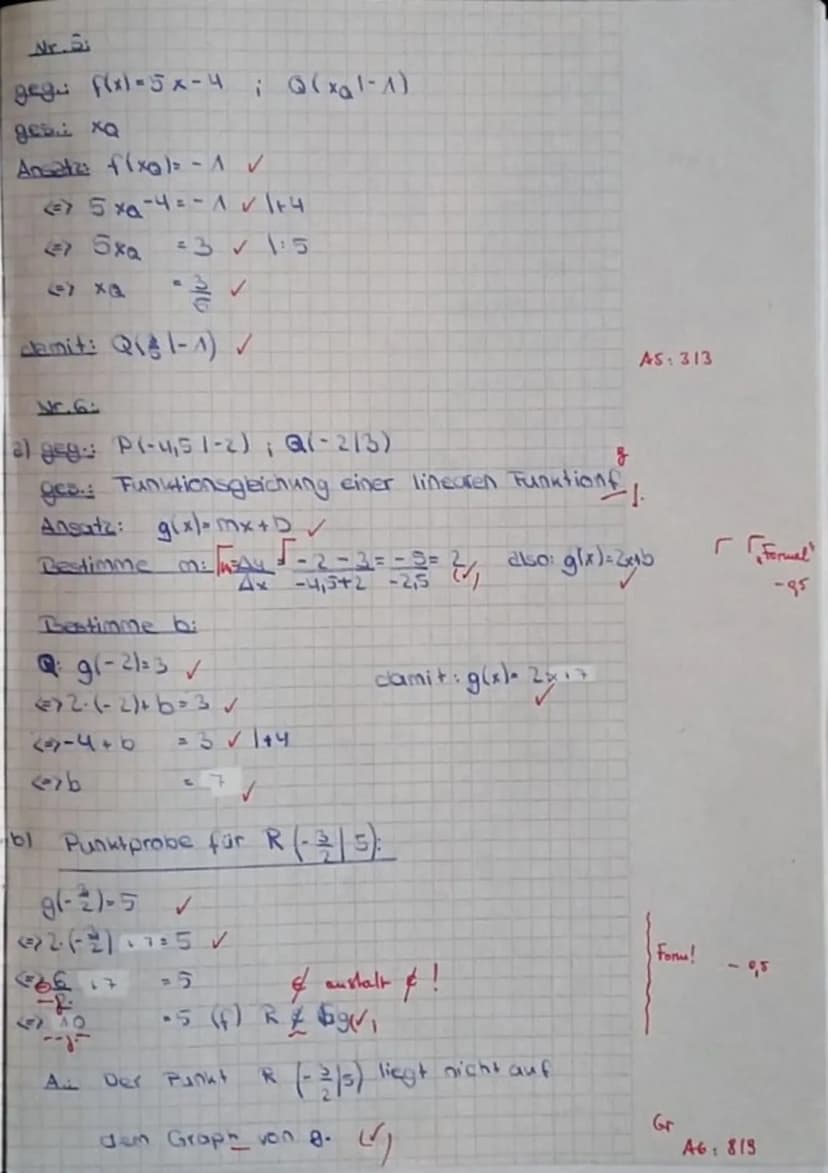 Nr. 5:
geg.: f(x)=5x-4 ; Q(xQ|-1)
ges.: xQ
Ansatz: f(xQ)=-1 ✓
<=> 5xQ-4=-1 ✓ |+4
<=> 5xQ =3 ✓ |:5
<=> xQ = 3/5 ✓
damit: Q(3/5|-1) ✓
A5: 3/3
Nr. 6:
a) geg.: P(-4,5|-2) ; Q(-2|3)
g
ges.: Funktionsgleichung einer linearen Funktion f
Ansatz: g(x)=mx+b ✓
Bestimme m: m=Δy/Δx = -2-3/-4,5+2 = -5/-2,5 = 2 (✓) also: g(x)=2x+b ✓
Γ "Formel"
-0,5
Bestimme b:
Q: g(-2)=3 ✓
damit: g(x)= 2x+7 ✓
<=> 2·(-2)+b=3 ✓
<=> -4+b =3 ✓ |+4
<=> b = 7 ✓
b) Punktprobe für R(-3/2|5):
g(-3/2)=5 ✓
<=> 2·(-3/2)+7=5 ✓
Form! -0,5
<=> +7 =5 ∉ anstatt ¢ !
<=> 10 =5 (f) R ∉ g (✓)
A.: Der Punkt R (-3/2|5) liegt nicht auf
dem Graph von g. (✓)
Gr
A6: 8/9